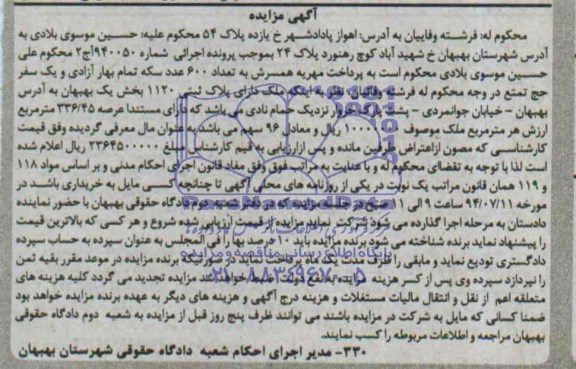 آگهی مزایده
محکوم له: فرشته وفاییان به آدرس: اهواز پادادشهر خ یازده پلاک ۵۴ محکوم علیه: حسین موسوی بلادی به
آدرس شهرستان بهبهان خ شهید آباد کوچ رهنورد پلاک ۲۴ بموجب پرونده اجرائی شماره ۹۴۰۰۵۰اج۲ محکوم علی
حسین موسوی بلادی محکوم است به پرداخت مهریه همسرش به تعداد ۶۰۰ عدد سکه تمام بهار آزادی و یک سفر
حج تمتع در وجه محکوم له فرشته وفائیان نظر به اینکه ملک دارای پلاک ثبتی ۱۱۲۰ بخش یک بهبهان به آدرس
بهبهان - خیابان جوانمردی - پشت پارک نزدیک حمام نادی می باشد که دارای مستندا عرصه ۳۳۶/۴۵ مترمربع
ارزش هر مترمربع ملک موصوف ریال و معادل ۹۶ سهم می باشد به عنوان مال معرفی گردیده وفق قیمت
کارشناسی که مصون ازاعتراض طرفین مانده و پس ازارزیابی به قیم کارشناس مبلغ ۲۳۶۴۵۰۰۰۰۰ ریال اعلام شده
است لذا با توجه به تقضاای محکوم له و با عنایت به مراتب فوق وفق مفاد قانون اجرای احکام مدنی و بر اساس مواد ۱۱۸
و ۱۱۹ همان قانون مراتب یک نوبت در یکی از روزنامه های محلی آگهی تا چنانچه کسی مایل به خریداری باشد در
مورخه ۹۴/۰۷/۱۱ ساعت ۹ الی ۱۱ صبح در جلسه مزایده که در دفتر شعبه دوم دادگاه حقوقی بهبهان با حضور نماینده
دادستان به مرحله اجرا گذارده می شود شرکت نماید مزایده از قیمت ارزیابی شده شروع و هر کسی که بالاترین قیمت
را پیشنهاد نماید برنده شناخته می شود برنده مزایده باید ۱۰ درصد بها را فی المجلس به عنوان سپرده به حساب سپرده
دادگستری تودیع نماید و مابقی را ظرف مدت یک ماه پرداخت نماید در صورتیکه برنده مزایده در موعد مقرر بقیه ثمن
را نپردازد سپرده وی پس از کسر هزینه مزایده به نفع دولت ضبط خواهد شد مزایده تجدید می گردد کلیه هزینه های
متعلقه اعم از نقل و انتقال مالیات مستغلات و هزینه درج آگهی و هزینه های دیگر به عهده برنده مزایده خواهد بود
ضمنا کسانی که مایل به شرکت در مزایده باشند می توانند ظرف پنج روز قبل از مزایده به شعبه دوم دادگاه حقوقی
بهبهان مراجعه و اطلاعات مربوطه را کسب نمایند.
۳۳۰- مدیر اجرای احکام شعبه دادگاه حقوقی شهرستان بهبهان
پایگاه اطلاع رسانی مناقصه و مزایده
۰۲۱-۸۸۳۴۹۶۷۰-۵